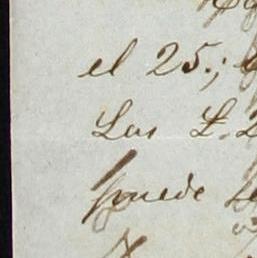 el 25.;
Las £. 2
puede